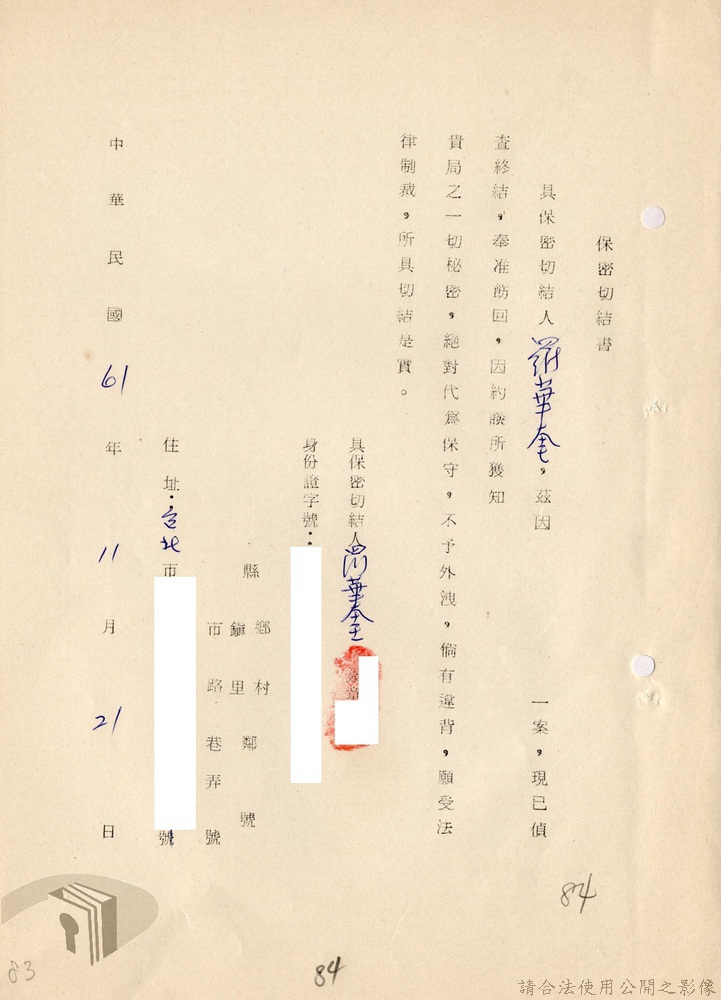 保密切結書
具保密切結人羅華奎，茲因 一案，現已偵
查終結，奉准飭回，因約談所獲知
貴局之一切秘密，絕對代為保守，不予外洩，倘有違背，願受法
律制裁，所具切結是實。
具保密切結人羅華奎
身份證字號：
縣 鄉村鄰號
鎮里
市路巷弄號
住址：台北市 號
中華民國61年11月21日
84
84
83
請合法使用公開之影像